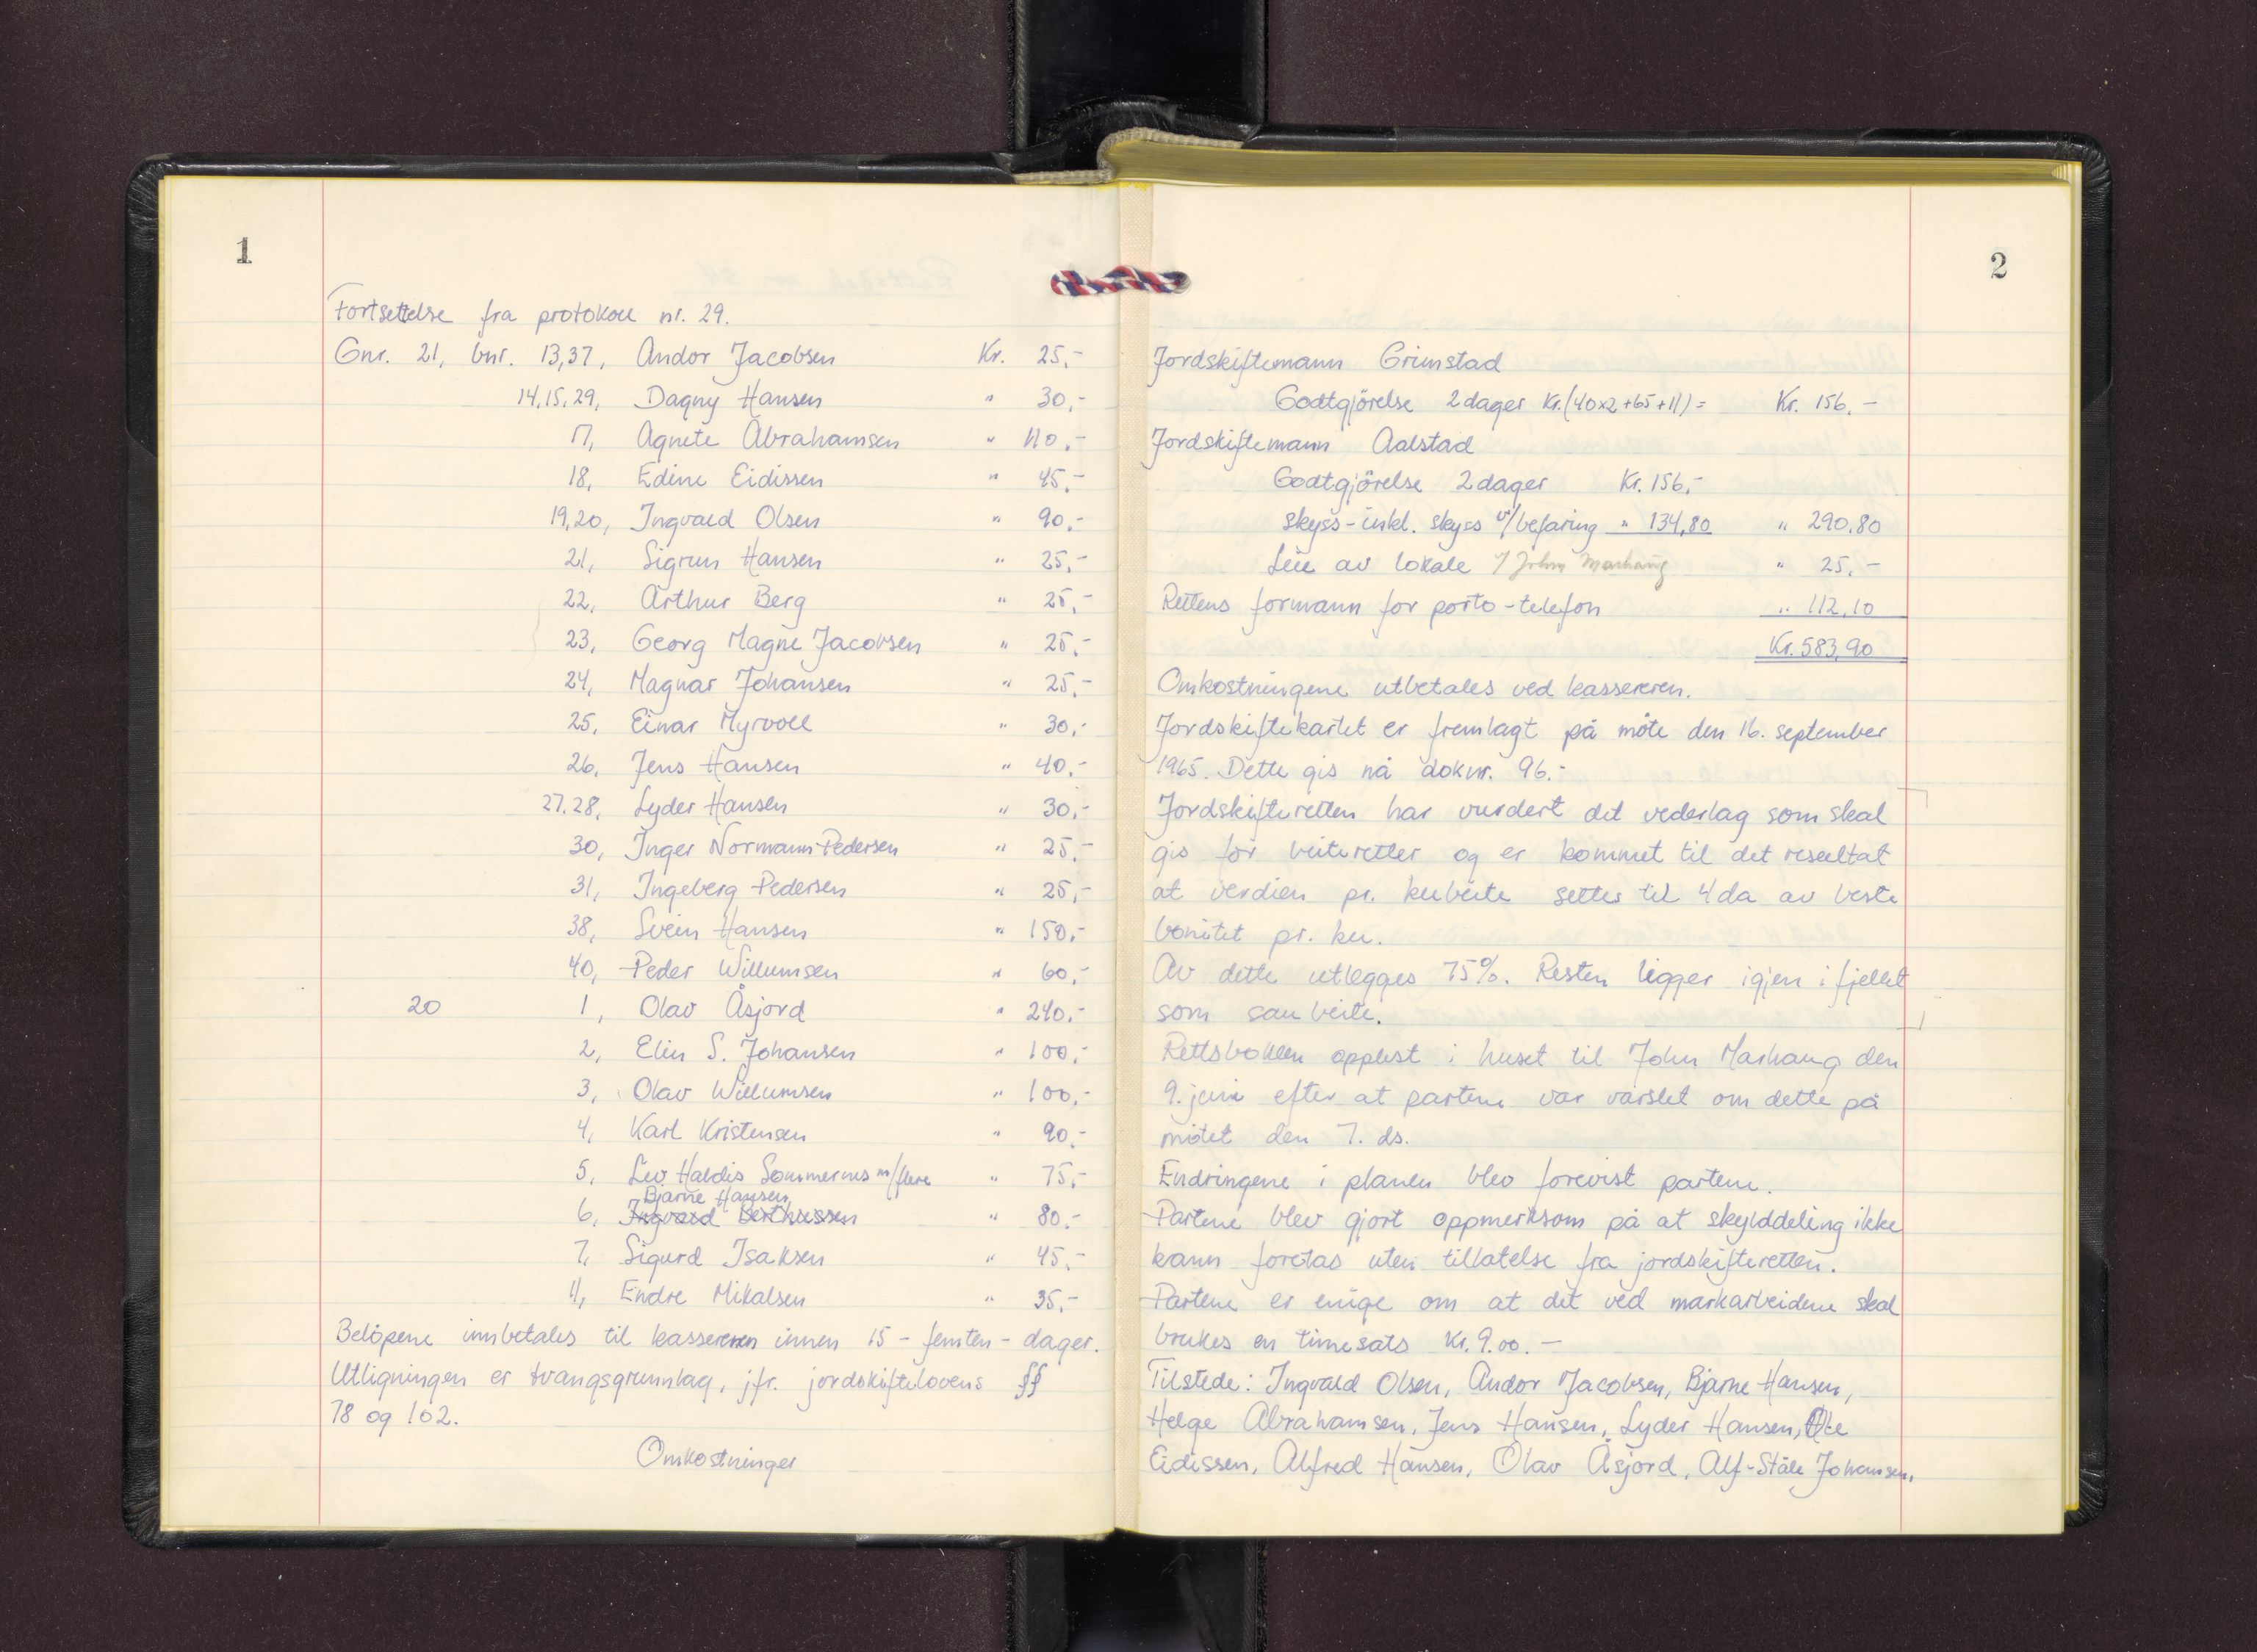 1
Fortsettelse fra protokoll nr. 29.
Gnr. 21, bnr. 13,37, Andor Jacobsen Kr. 25,-
14,15,29, Dagny Hansen " 30,-
17, Agnete Abrahamsen " 110,-
18, Edine Eidissen " 45,-
19,20, Ingvald Olsen " 90,-
21, Sigrun Hansen " 25,-
22, Arthur Berg " 25,-
23, Georg Magne Jacobsen " 25,-
24, Magnar Johansen " 25,-
25, Einar Myrvoll " 30,-
26, Jens Hansen " 40,-
27.28, Lyder Hansen " 30,-
30, Inger Normann-Pedersen " 25,-
31, Ingeberg Pedersen " 25,-
38, Svein Hansen " 150,-
40, Peder Willumsen " 60,-
20 1, Olav Åsjord " 240,-
2, Elin S. Johansen " 100,-
3, Olav Willumsen " 100,-
4, Karl Kristensen " 90,-
5, Haldis Sommernes m/flere " 75,-
Bjarne Hansen
6, Ingvald Berthussen " 80,-
7, Sigurd Isaksen " 45,-
11, Endre Mikalsen " 35,-
Belöpene innbetales til kassereren innen 15 - femten - dager.
Utligningen er tvangsgrunnlag, jfr. jordskiftelovens §§
78 og 102.
Omkostninger
2
Jordskiftemann Grimstad
Godtgjörelse 2 dager Kr.(40x2+65+11) = Kr. 156.-
Jordskiftemann Aalstad
Godtgjörelse 2 dager Kr. 156,-
skyss-inkl. skyss v/befaring " 134,80 " 290.80
Leie av lokale / John Marhaug " 25.-
Rettens formann for porto-telefon " 112,10
Kr. 583,90
Omkostningene utbetales ved kassereren.
Jordskiftekartet er fremlagt på möte den 16. september
1965. Dette gis nå doknr. 96.-
Jordskifteretten har vurdert det vederlag som skal
gis for beiteretter og er kommet til det resultat
at verdien pr. kubeite settes til 4 da av beste
bonitet pr. ku.
Av dette utlegges 75%. Resten ligger igjen i fjellet
som saubeite.
Rettsboken opplest i huset til John Marhaug den
9. juni efter at partene var varslet om dette på
mötet den 7. ds.
Endringene i planen blev forevist partene.
Partene blev gjort oppmerksom på at skylddeling ikke
kann foretas uten tillatelse fra jordskifteretten.
Partene er enige om at det ved markarbeidene skal
brukes en timesats Kr. 9.00.-
Tilstede: Ingvald Olsen, Andor Jacobsen, Bjarne Hansen,
Helge Abrahamsen, Jens Hansen, Lyder Hansen,
Eidissen, Alfred Hansen, Olav Åsjord, Alf-Ståle Johansen,